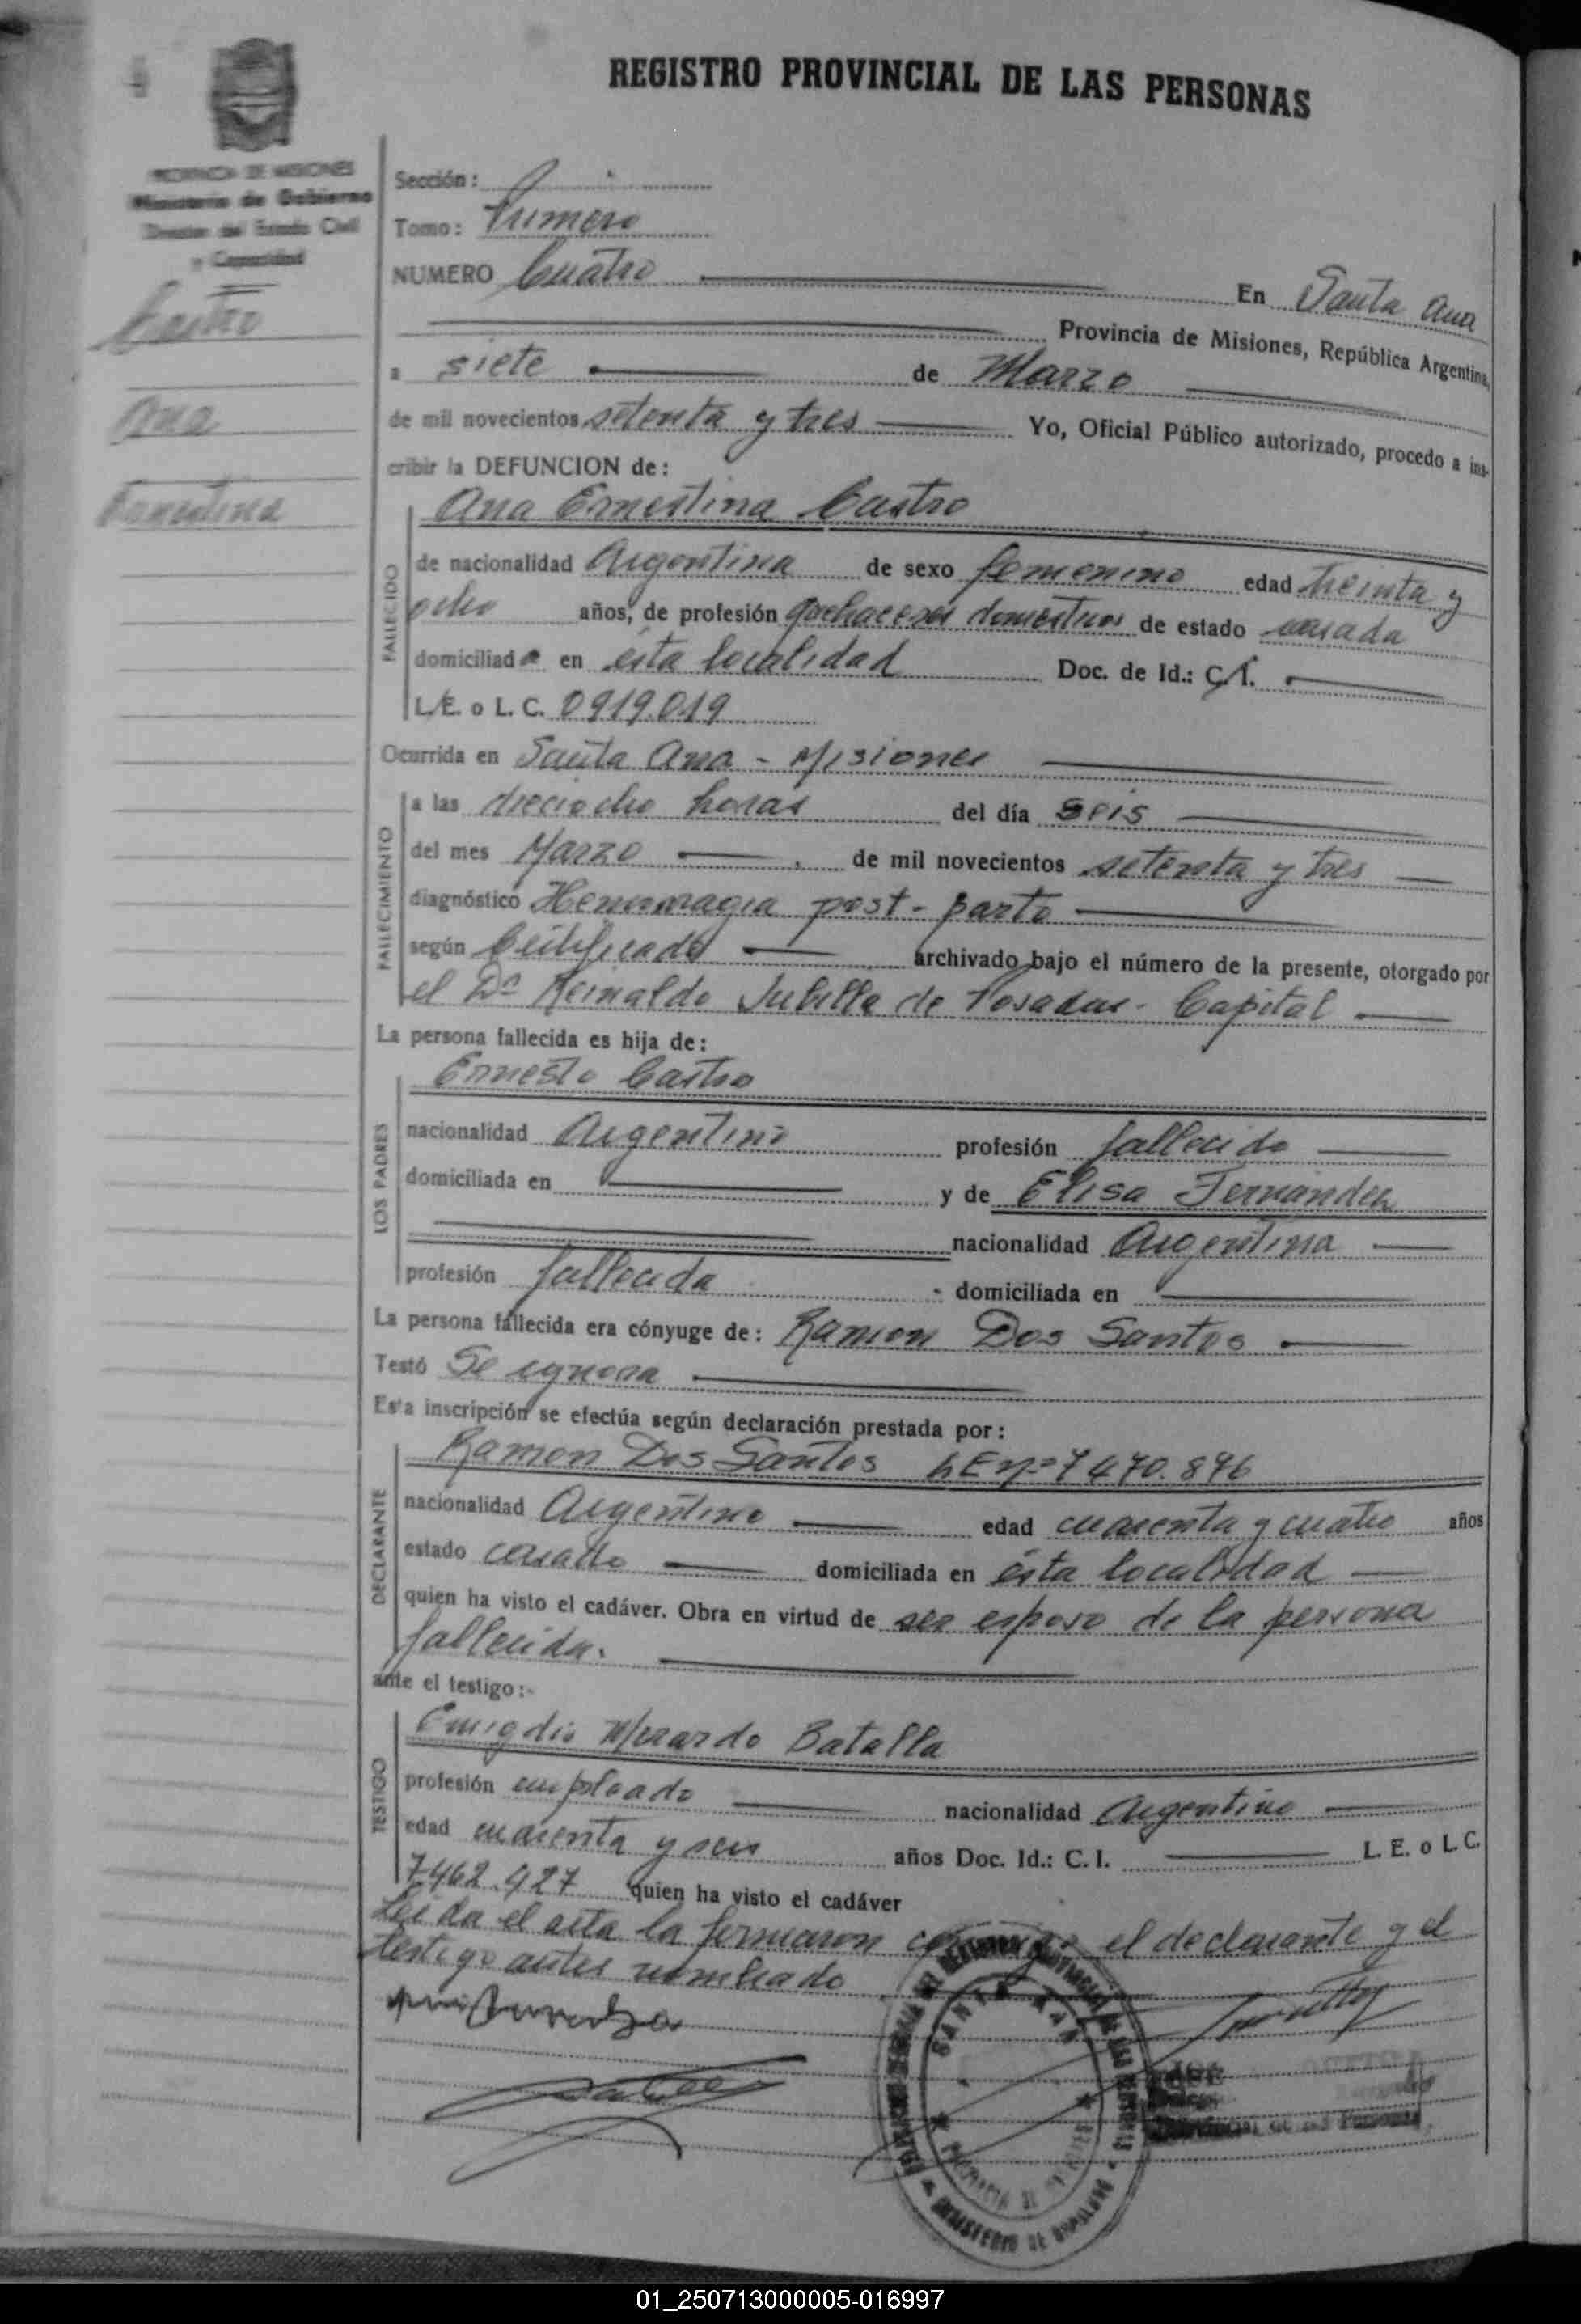 REGISTRO PROVINCIAL DE LAS PERSONAS
PROVINCIA DE MISIONES
Ministerio de Gobierno
Dirección del Estado Civil
y Capacidad
Castro
Ana
Ernestina
Sección:
Tomo: Primero
NUMERO Cuatro En Santa Ana
Provincia de Misiones, República Argentina,
a siete de Marzo
de mil novecientos setenta y tres Yo, Oficial Público autorizado, procedo a ins-
cribir la DEFUNCION de:
Ana Ernestina Castro
FALLECIDO
de nacionalidad Argentina de sexo femenino edad treinta y
ocho años, de profesión quehaceres domesticos de estado casada
domiciliada en ésta localidad Doc. de Id.: C.I.
L.E. o L. C. 0919.019
Ocurrida en Santa Ana - Misiones
FALLECIMIENTO
a las dieciocho horas del día seis
del mes Marzo de mil novecientos setenta y tres
diagnóstico Hemorragia post-parto
según Certificado archivado bajo el número de la presente, otorgado por
el Dr Reinaldo de Posadas - Capital
La persona fallecida es hija de:
Ernesto Castro
LOS PADRES
nacionalidad Argentino profesión fallecido
domiciliada en y de Elisa Fernandez
nacionalidad Argentina
profesión fallecida domiciliada en
La persona fallecida era cónyuge de: Ramon Dos Santos
Testó Se ignora
Esta inscripción se efectúa según declaración prestada por:
Ramon Dos Santos LE nº 7470.876
DECLARANTE
nacionalidad Argentino edad cuarenta y cuatro años
estado casado domiciliada en ésta localidad
quien ha visto el cadáver. Obra en virtud de ser esposo de la persona
fallecida.
ante el testigo:-
Emigdio Merardo Batalla
TESTIGO
profesión empleado nacionalidad Argentino
edad cuarenta y seis años Doc. Id.: C. I. L. E. o L. C.
7462.927 quien ha visto el cadáver
Leida el acta la firmaron conmigo el declarante y el
testigo antes nombrado
SANTA ANA
JOSE
Provincial de las Personas
MINISTERIO DE GOBIERNO
01_250713000005-016997